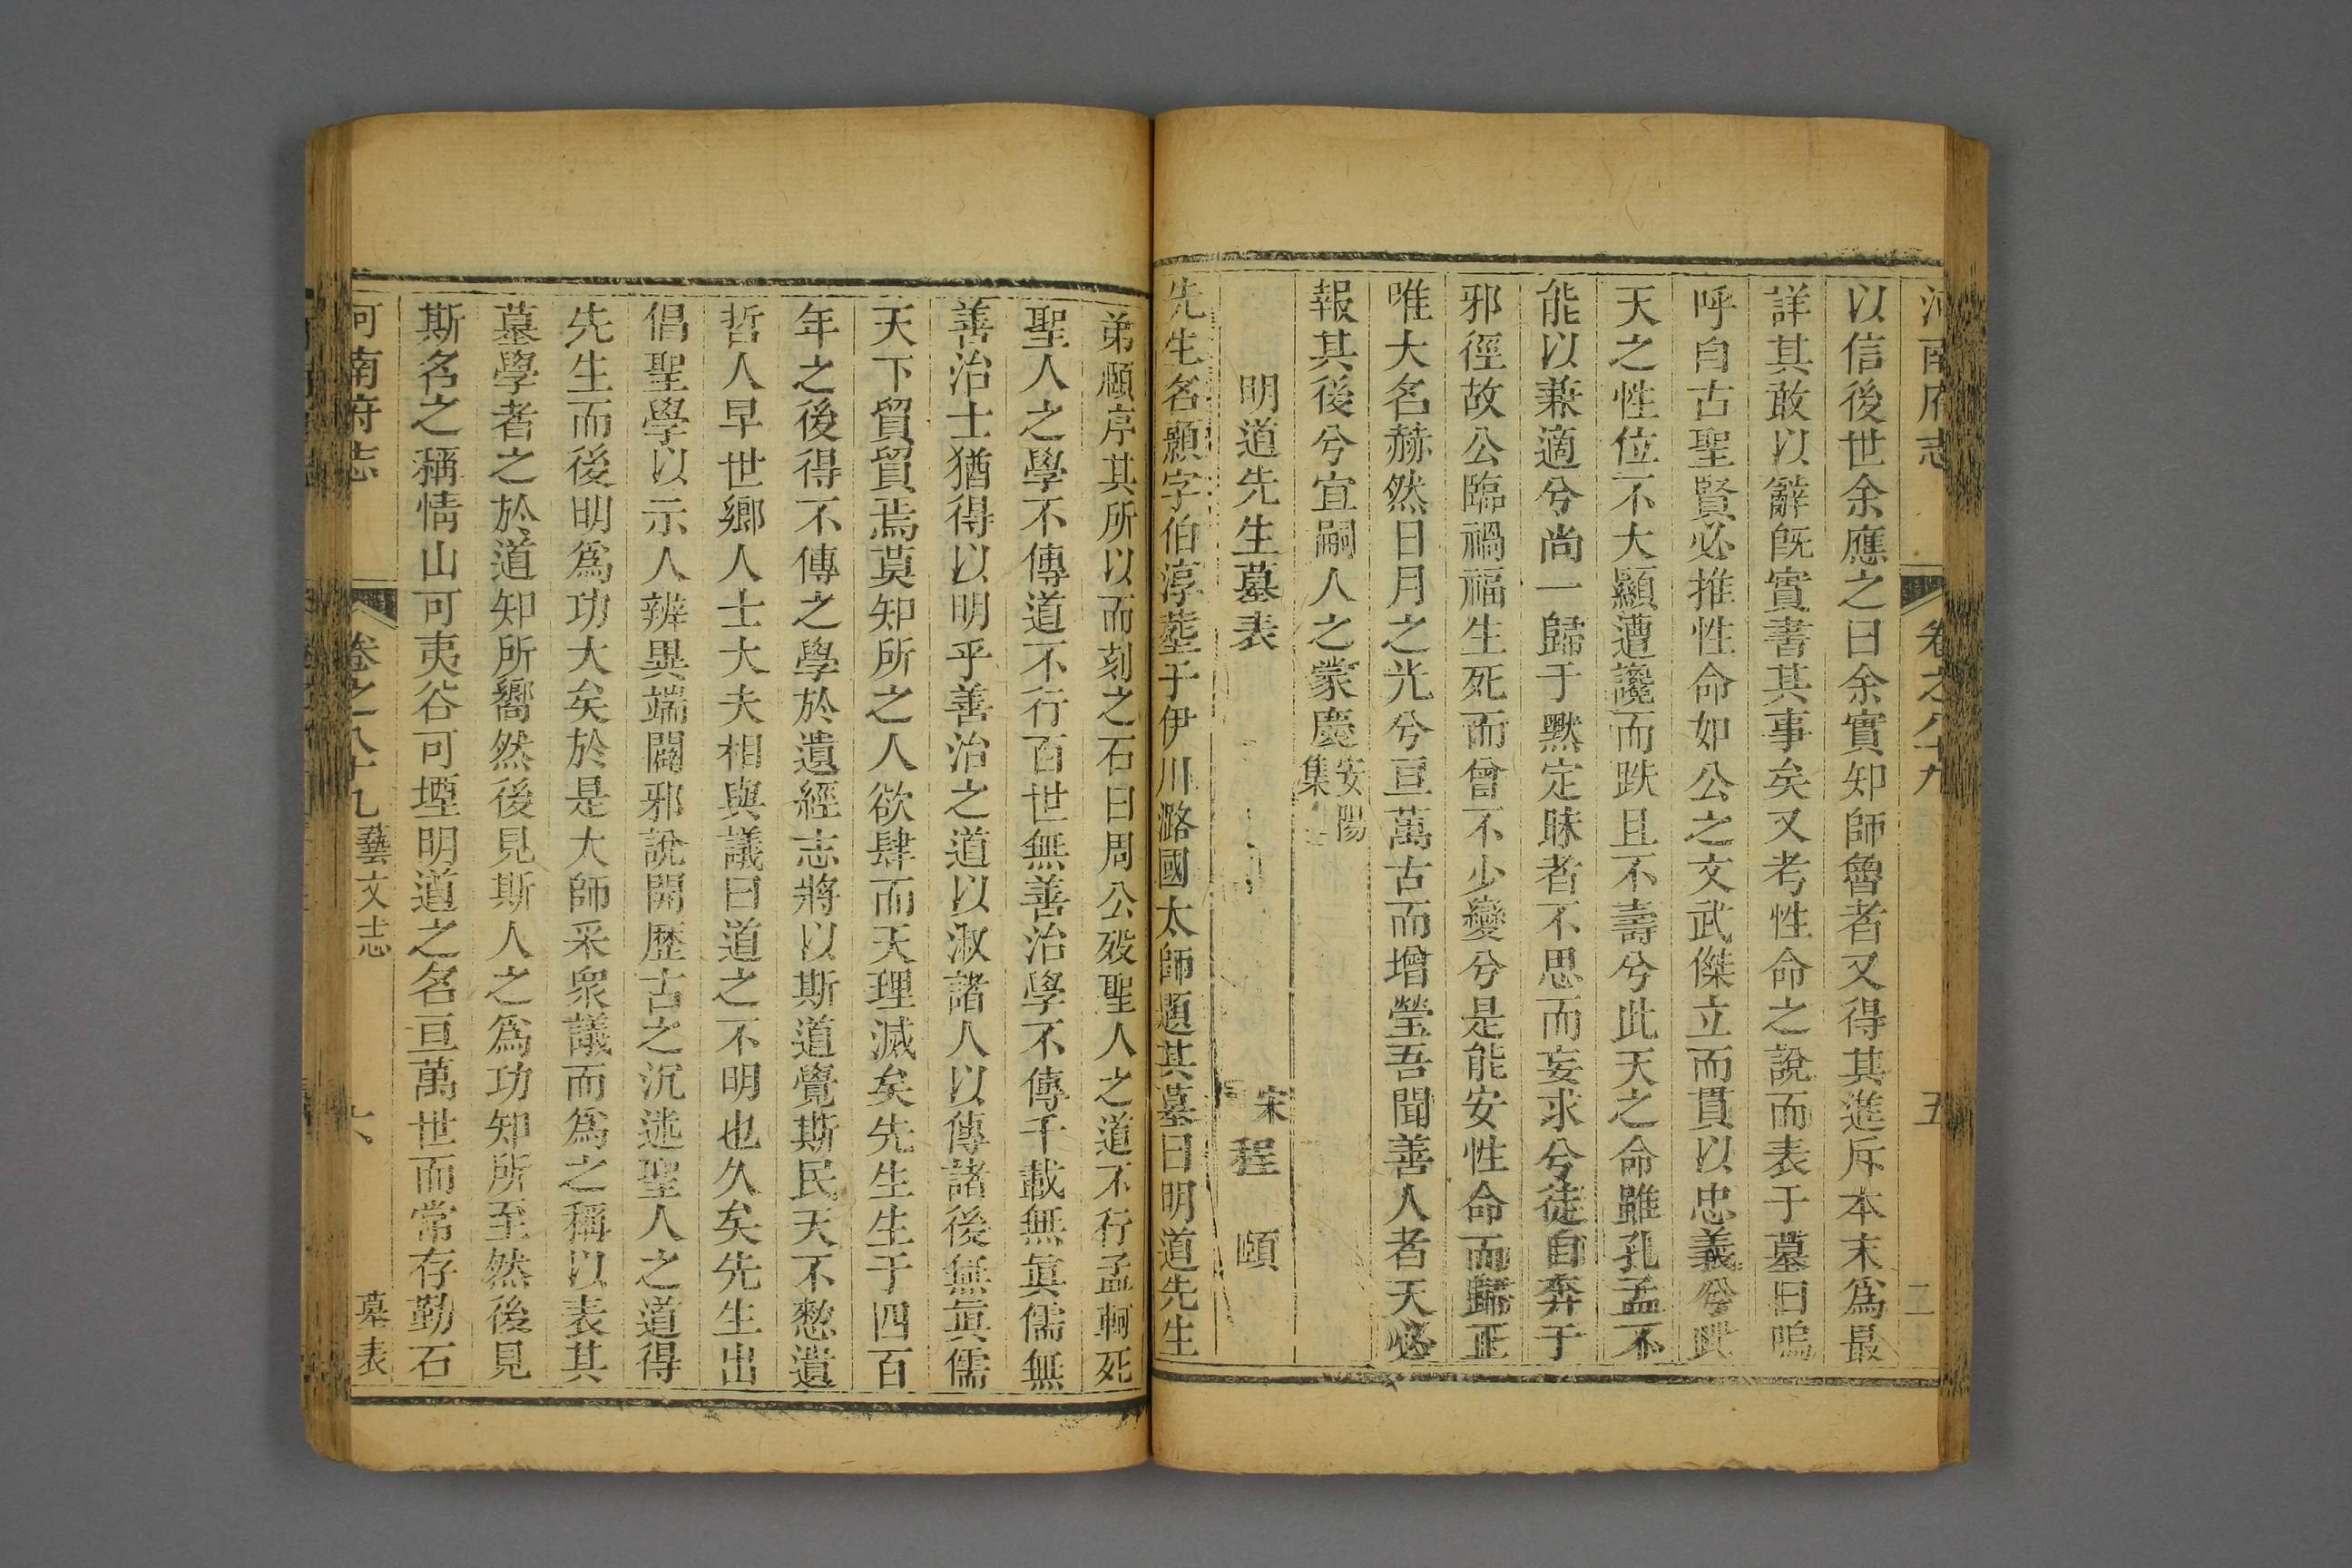 河南府志 卷之八十九 五 二
以信後世余應之曰余實知師魯者又得其進斥本末爲最
詳其敢以辭旣實書其事矣又考性命之說而表于墓曰嗚
呼自古聖賢必推性命如公之文武傑立而貫以忠義兮此
天之性位不大顯遭讒而跌且不壽兮此天之命雖孔孟不
能以兼適兮尚一歸于默定昧者不思而妄求兮徒自奔于
邪徑故公臨禍福生死而曾不少變兮是能安性命而歸正
唯大名赫然日月之光兮亘萬古而增瑩吾聞善人者天必
報其後兮宜嗣人之蒙慶安陽集
明道先生墓表 宋程頤
先生名顥字伯淳塟于伊川潞國太師題其墓曰明道先生
弟頤序其所以而刻之石曰周公歿聖人之道不行孟軻死
聖人之學不傳道不行百世無善治學不傳千載無眞儒無
善治士猶得以明乎善治之道以淑諸人以傳諸後無眞儒
天下貿貿焉莫知所之人欲肆而天理滅矣先生生于四百
年之後得不傳之學於遺經志將以斯道覺斯民天不憖遺
哲人早世鄉人士大夫相與議曰道之不明也久矣先生出
倡聖學以示人辨異端闢邪說開歷古之沉迷聖人之道得
先生而後明爲功大矣於是大師采衆議而爲之稱以表其
墓學者之於道知所嚮然後見斯人之爲功知所至然後見
斯名之稱情山可夷谷可堙明道之名亘萬世而常存勤石
河南府志 卷之八十九 藝文志 六 墓表